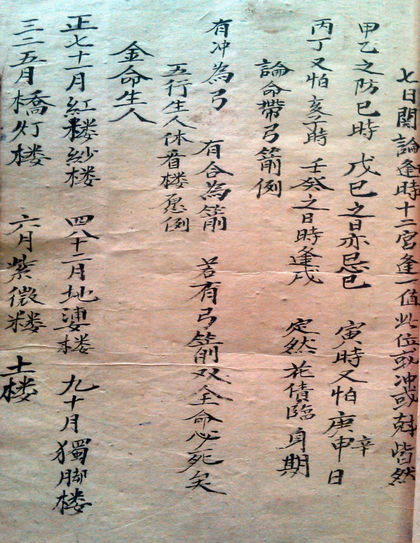 七日関論逢時十二宮逢一值此位或冲或尅皆然
甲乙之防巳時 戊巳之日亦忌巳 寅時又怕庚申辛日
丙丁又怕亥子時 壬癸之日時逢戌 定然花債臨身期
論命帶弓箭例
有冲為弓 有合為箭 若有弓箭双全命必死矣
五行生人休看楼愿例
金命生人
正七十一月紅楼紗楼 四八十二月地婆楼 九十月獨脚楼
三二五月橋灯楼 六月紫微楼 土楼